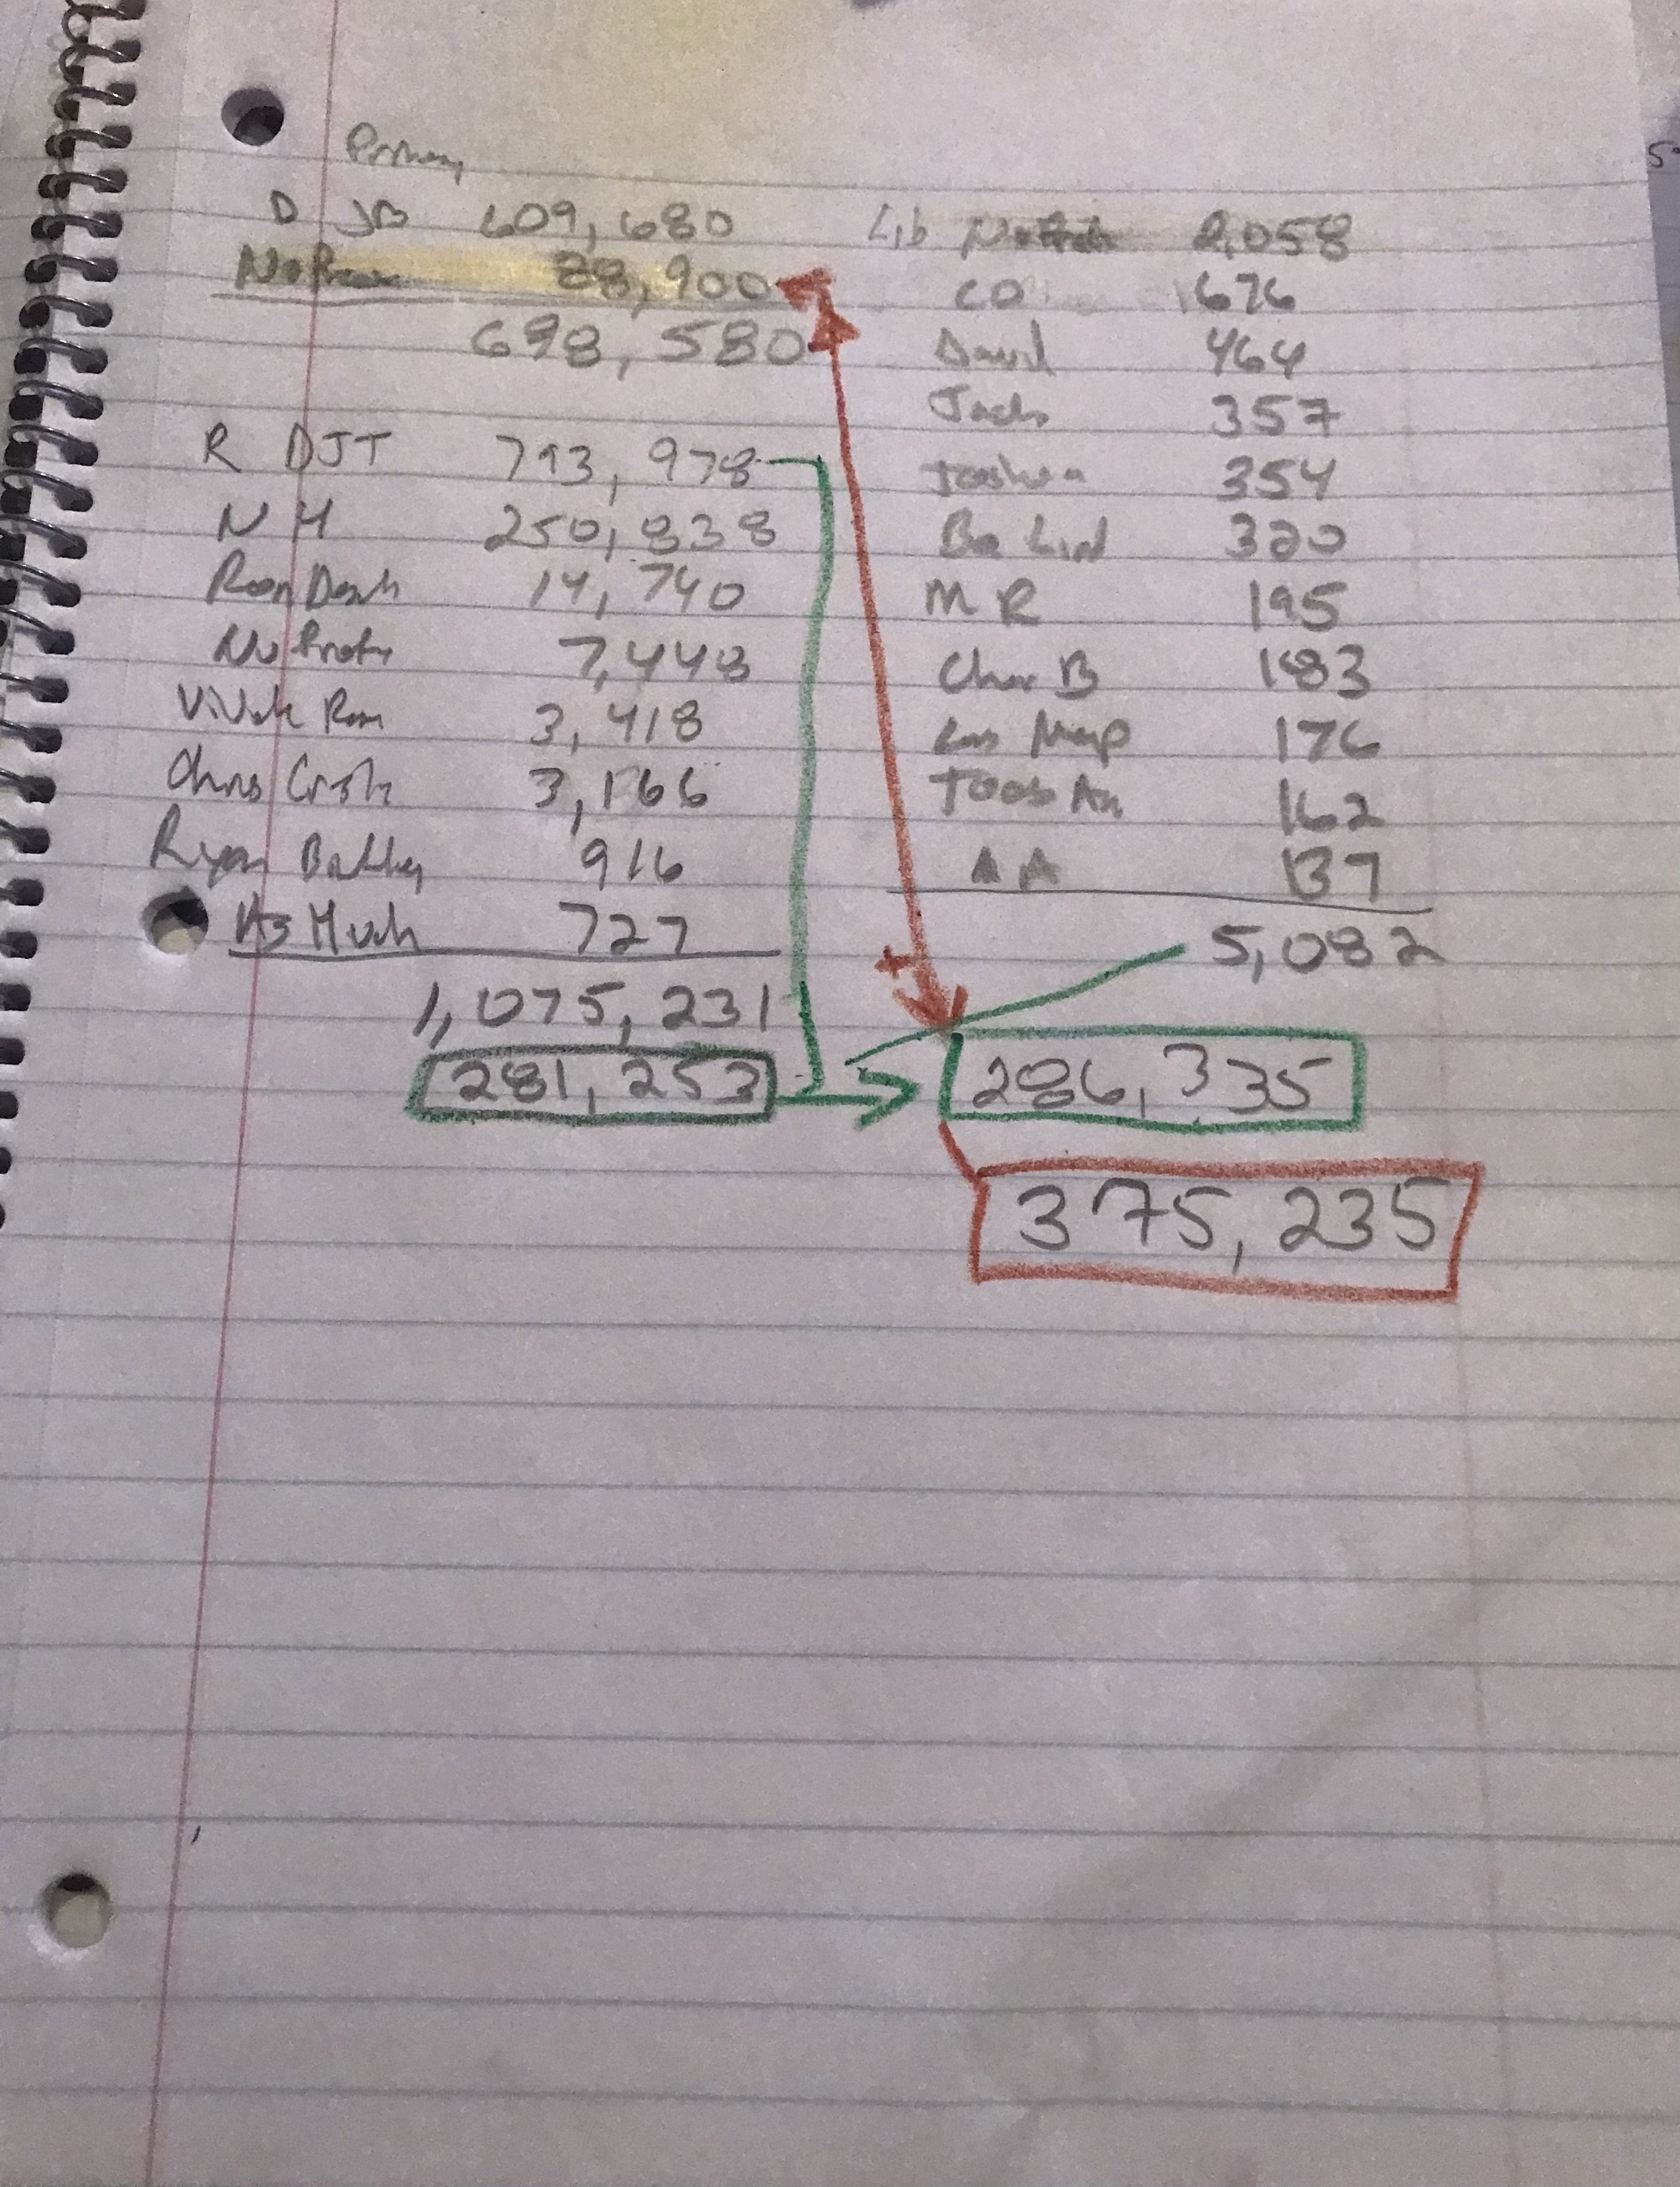 Primary
D JB 609,680
No Pref 88,900
698,580
R DJT 793,978
N H 250,838
Ron Desh 14,740
No Prefr 7,448
Vivek Ram 3,418
Chris Crsti 3,166
Ryan Binkley 916
As Huch 727
1,075,231
281,253
Lib 2,058
CO 676
David 464
Jacb 357
Joshua 354
320
M R 195
Char B 183
Lars Map 176
162
AA 137
5,082
+
286,335
375,235